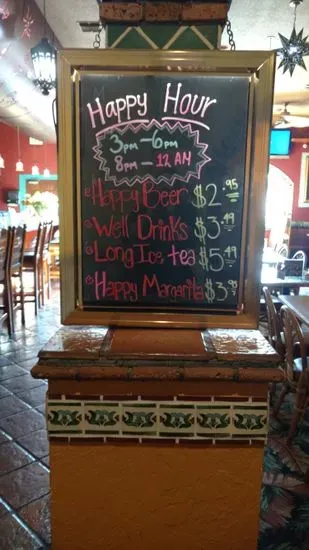 Happy Hour
3pm - 6pm
8pm - 12 AM
Happy Beer $2.95
Well Drinks $3.49
Long Ice tea $5.49
Happy Margarita $3.95